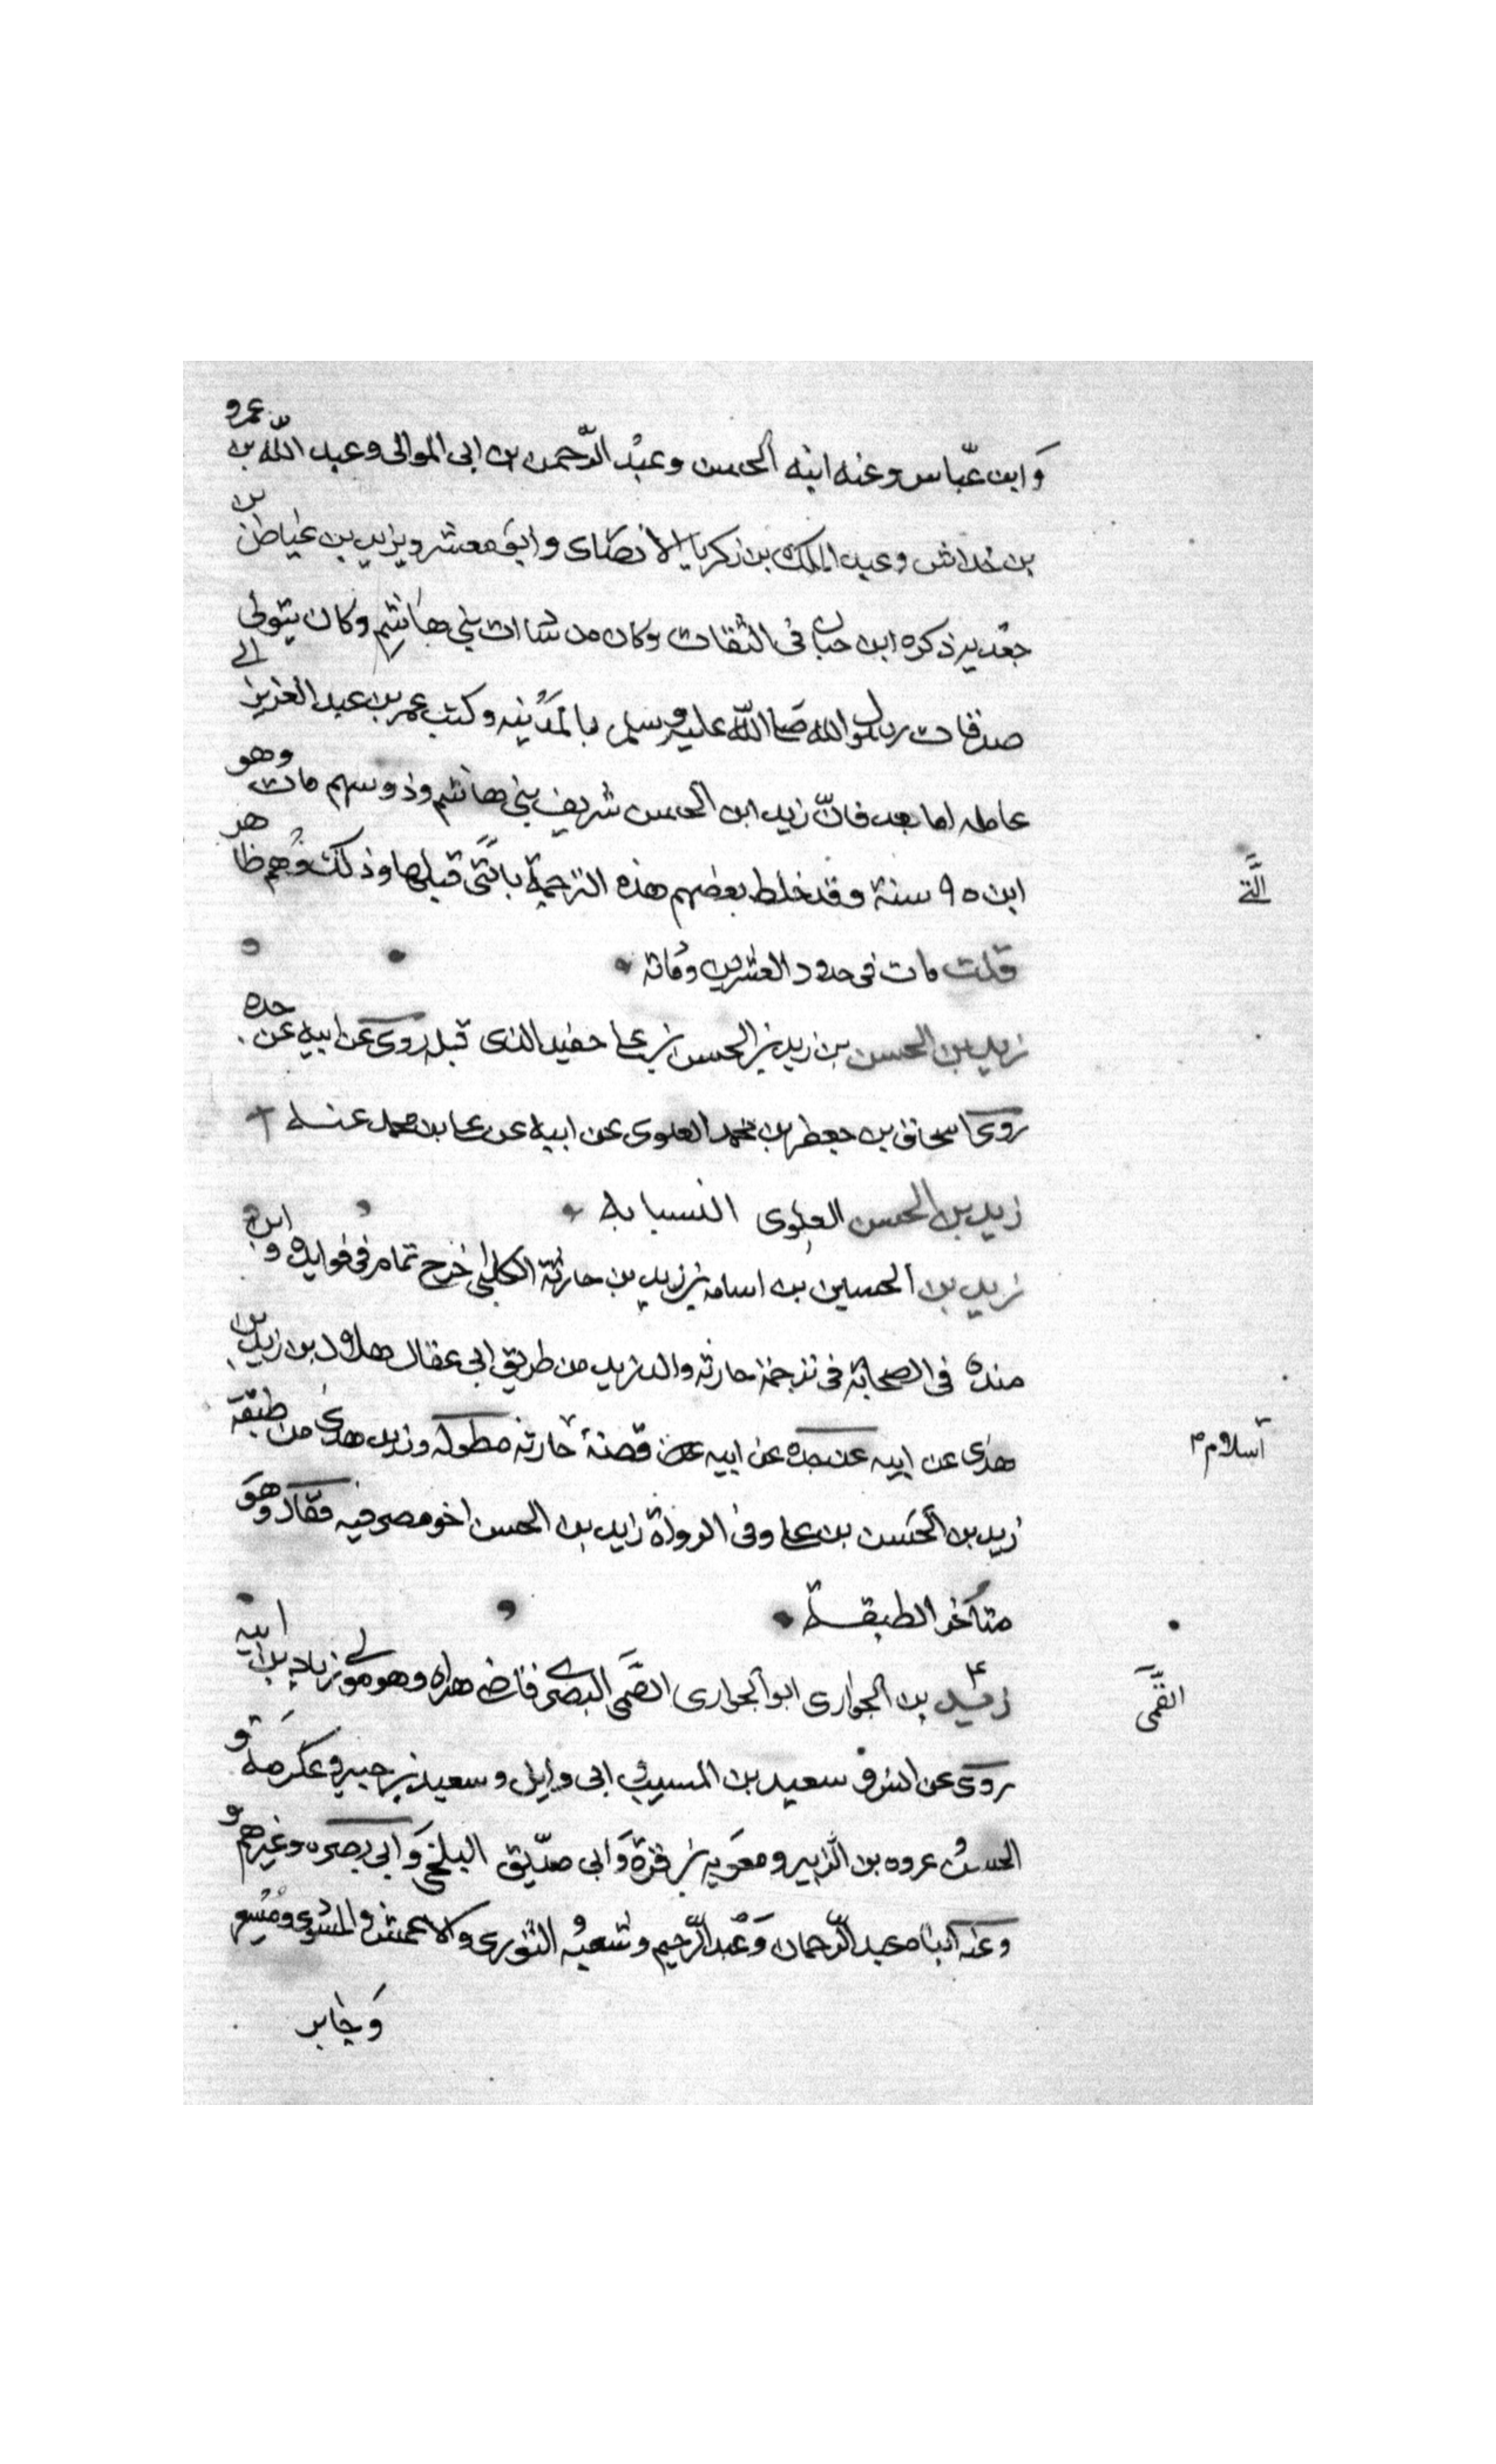 وابن عباس وعنه ابنه الحسن وعبد الرحمن بن ابى الموالى وعبد الله بن عمرو
بن خداش وعبد الملك بن زكريا الانصارى وابو معشر ويزيد بن عياض بن
جعدبه ذكره ابن حبان فى الثقات وكان من سادات بنى هاشم وكان يتولى
صدقات رسول الله صلى الله عليه وسلم بالمدينه وكتب عمر بن عبد العزيز الى
عامله اما بعد فانّ زيد ابن الحسن شريف بنى هاشم وذو سنهم مات وهو
ابن ٩٥ سنة وقد خلط بعضهم هذه الترجمة بالتى قبلها وذلك وهم ظاهر
التى
قلت مات فى حدود العشرين ومائه
زيد بن الحسن بن زيد بن الحسن بن على حفيد الذى قبله روى عن ابيه عن جده
روى اسحاق بن جعفر بن محمد العلوى عن ابيه عن على بن محمد عنه
زيد بن الحسن العلوى النسابه
زيد بن الحسين بن اسامه بن زيد بن حارثة الكلبى خرج تمام فى فوايده وابن
منده فى الصحابة فى ترجمة حارثه والد زيد من طريق ابى عقال هلال بن زيد بن
هذى عن ابيه عن جده عن ابيه عن قصة حارثه مطوله وزيد هذى من طبقة
اسلام
زيد بن الحسن بن على وفى الرواة زيد بن الحسن اخو مصرفيه فقال وهو
متأخر الطبقة
زيد بن الحوارى ابو الحوارى العمى البصرى قاضى هراه وهو مولى زياد بن ابيه
العمى
روى عن انس و سعيد بن المسيب ابى وايل وسعيد بن جبير و عكرمة و
الحسن و عروه بن الزبير و معويه بن قرة وابى صديق وابى بصره وغيرهم و
وعنه ابناه عبد الرحمان وعبد الرحيم وشعبه الثورى والاعمش و ومسعر
وجابر